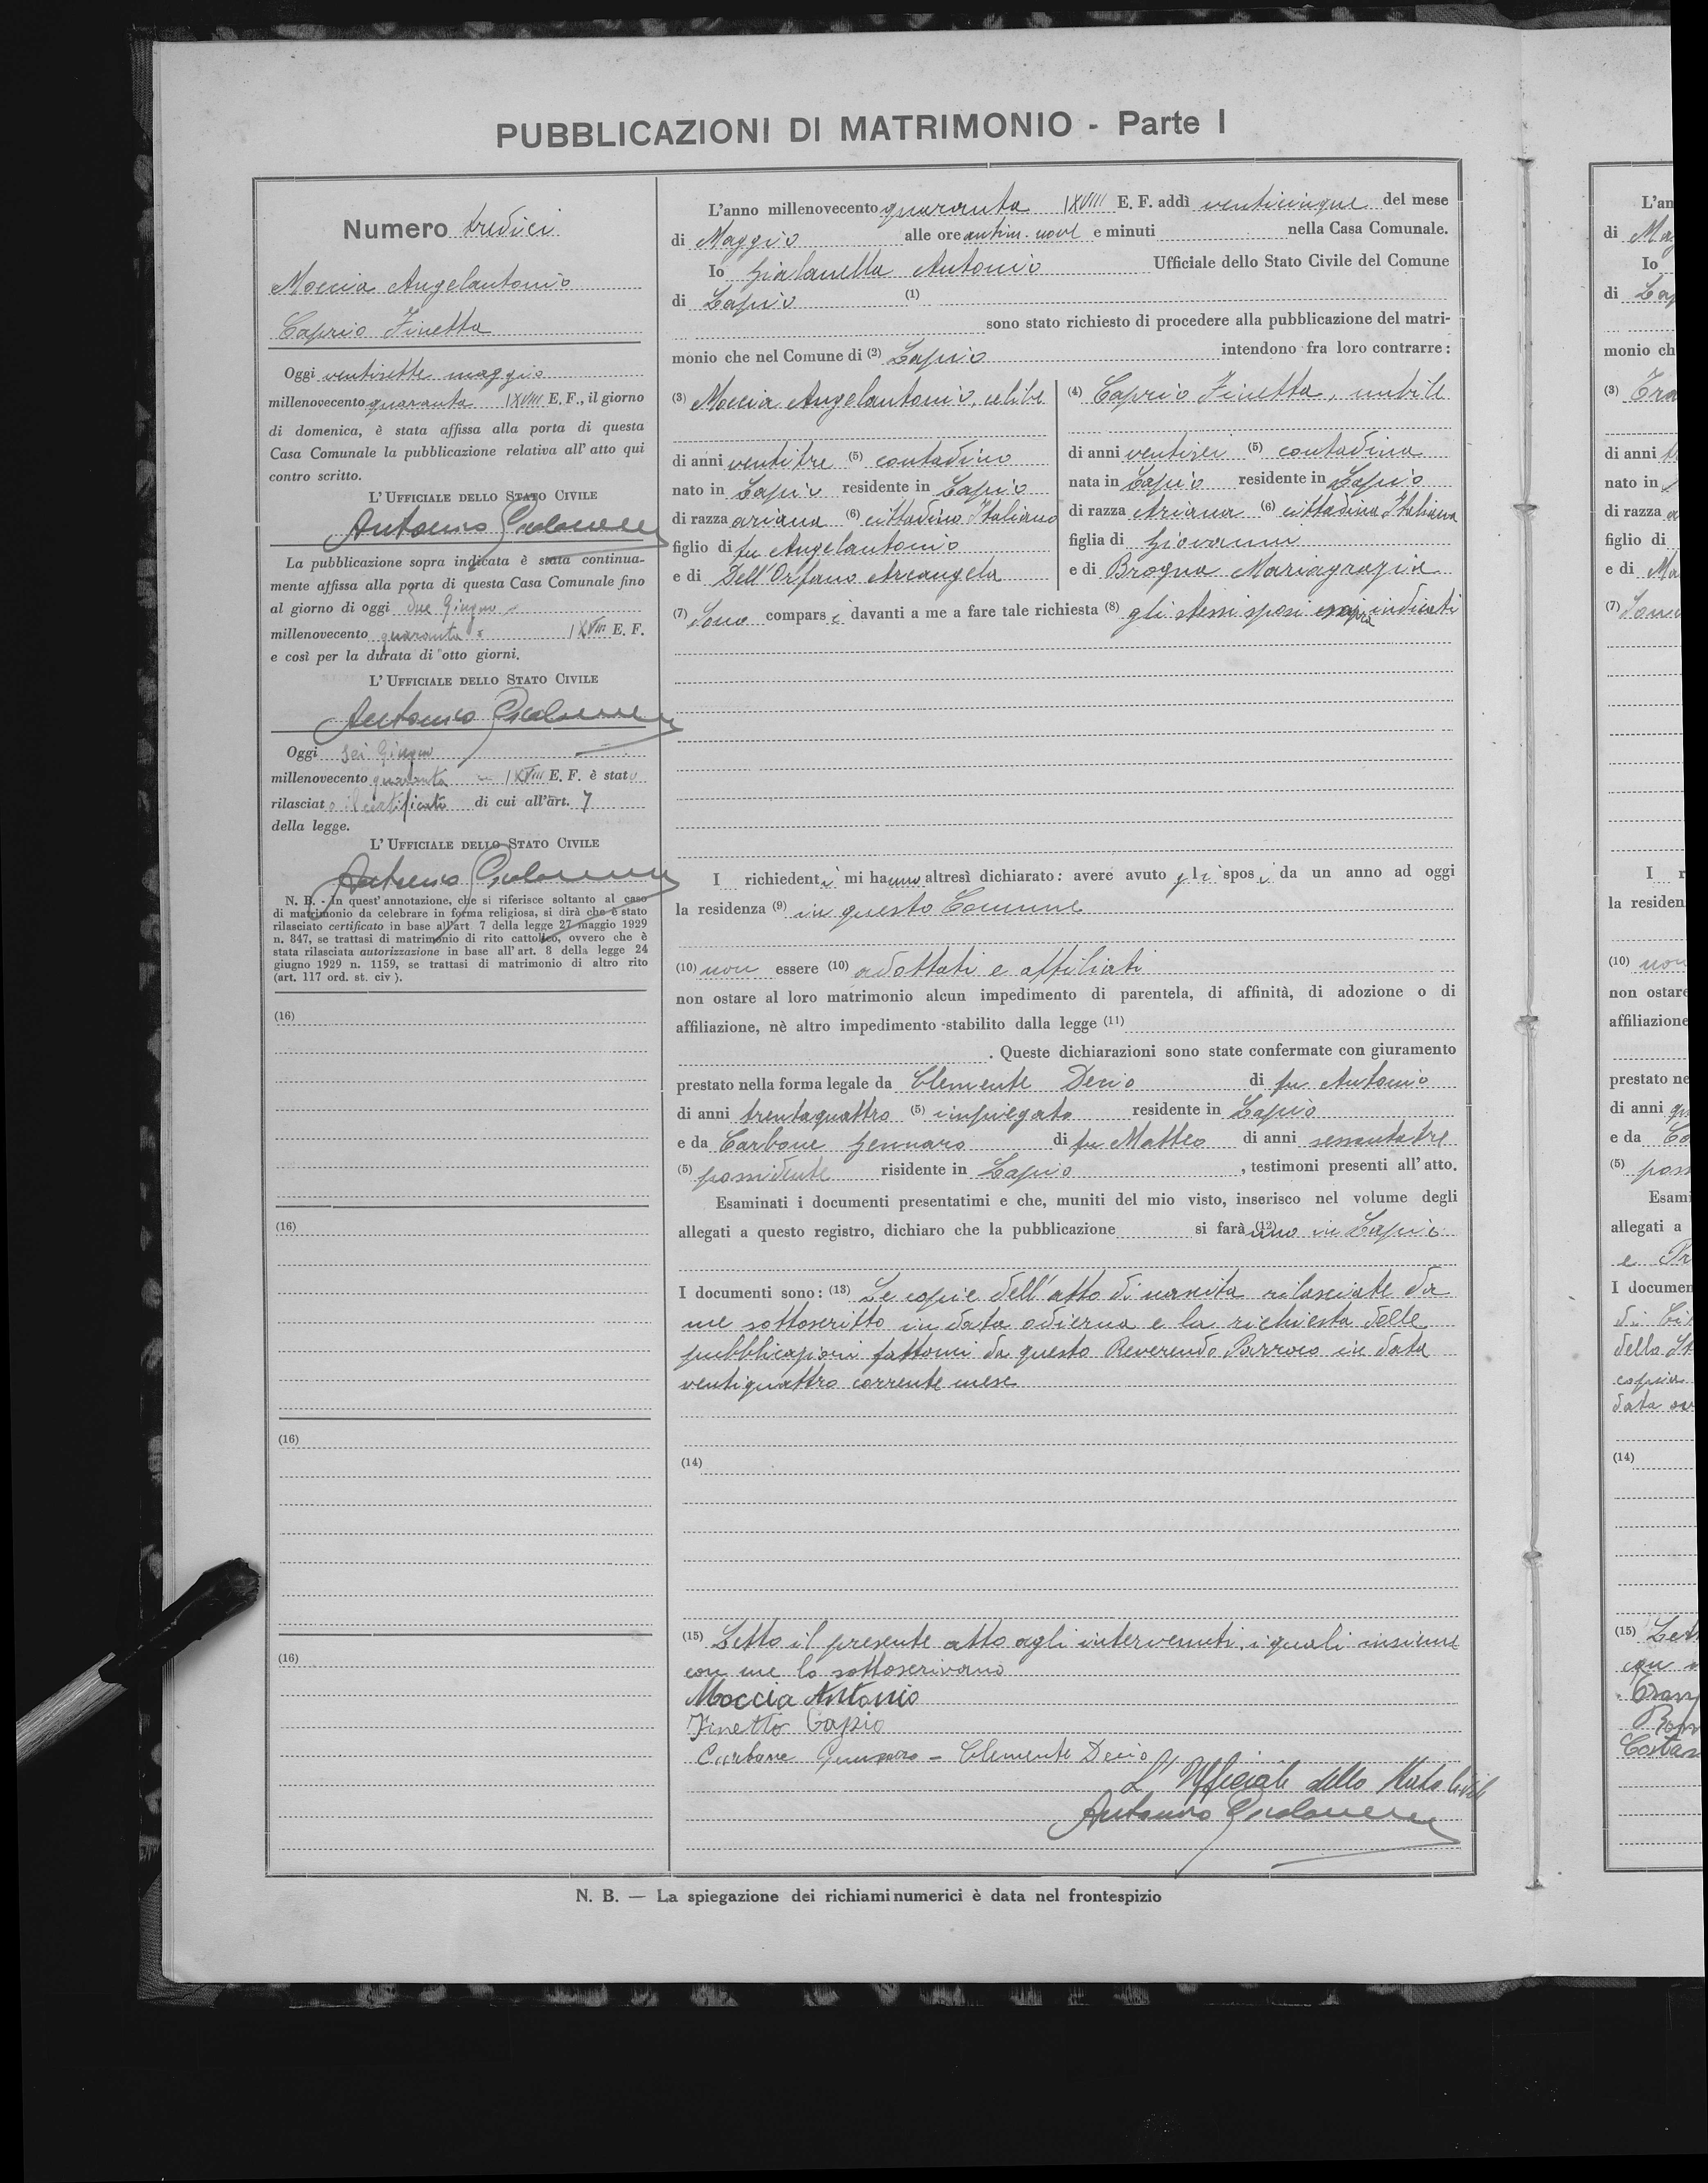 PUBBLICAZIONI DI MATRIMONIO - Parte I
Numero tredici
Moccia Angelantonio
Caprio Finetta
Oggi ventisette maggio
millenovecento quaranta XVIII E. F., il giorno
di domenica, è stata affissa alla porta di questa
Casa Comunale la pubblicazione relativa all'atto qui
contro scritto.
L'UFFICIALE DELLO STATO CIVILE
Antonio
La pubblicazione sopra indicata è stata continua-
mente affissa alla porta di questa Casa Comunale fino
al giorno di oggi due Giugno
millenovecento quaranta XVIII E. F.
e così per la durata di otto giorni.
L'UFFICIALE DELLO STATO CIVILE
Antonio
Oggi sei Giugno
millenovecento quaranta XVIII E. F. è stato
rilasciato il certificato di cui all'art. 7
della legge.
L'UFFICIALE DELLO STATO CIVILE
Antonio
N. B. - In quest'annotazione, che si riferisce soltanto al caso
di matrimonio da celebrare in forma religiosa, si dirà che è stato
rilasciato certificato in base all'art. 7 della legge 27 maggio 1929
n. 847, se trattasi di matrimonio di rito cattolico, ovvero che è
stata rilasciata autorizzazione in base all'art. 8 della legge 24
giugno 1929 n. 1159, se trattasi di matrimonio di altro rito
(art. 117 ord. st. civ).
(16)
(16)
(16)
(16)
L'anno millenovecento quaranta XVIII E. F. addì venticinque del mese
di Maggio alle ore antim. nove e minuti nella Casa Comunale.
Io Antonio Ufficiale dello Stato Civile del Comune
di Lapio (1)
sono stato richiesto di procedere alla pubblicazione del matri-
monio che nel Comune di (2) Lapio intendono fra loro contrarre:
(3) Moccia Angelantonio, celibe
di anni ventitre (5) contadino
nato in Lapio residente in Lapio
di razza ariana (6) cittadino Italiano
figlio di fu Angelantonio
e di Dell'Orfano Arcangela
(4) Caprio Finetta, nubile
di anni ventisei (5) contadina
nata in Lapio residente in Lapio
di razza Ariana (6) cittadina Italiana
figlia di Giovanni
e di Brogna Mariagrazia
(7) Sono comparsi davanti a me a fare tale richiesta (8) gli stessi sposi sopra indicati
I richiedenti mi hanno altresì dichiarato: avere avuto gli sposi da un anno ad oggi
la residenza (9) in questo Comune
(10) non essere (10) adottati e affiliati
non ostare al loro matrimonio alcun impedimento di parentela, di affinità, di adozione o di
affiliazione, nè altro impedimento stabilito dalla legge (11)
. Queste dichiarazioni sono state confermate con giuramento
prestato nella forma legale da Clemente Decio di fu Antonio
di anni trentaquattro (5) impiegato residente in Lapio
e da Carbone Gennaro di fu Matteo di anni sessantatre
(5) possidente risidente in Lapio, testimoni presenti all'atto.
Esaminati i documenti presentatimi e che, muniti del mio visto, inserisco nel volume degli
allegati a questo registro, dichiaro che la pubblicazione si farà (12) in Lapio
I documenti sono: (13) Le copie dell'atto di nascita rilasciate da
me sottoscritto in data odierna e la richiesta delle
pubblicazioni fattomi da questo Reverendo Parroco in data
ventiquattro corrente mese
(14)
(15) Letto il presente atto agli intervenuti, i quali insieme
con me lo sottoscrivono
Moccia Antonio
Finetta Capio
Carbone Gennaro - Clemente Decio
L'Ufficiale dello Stato Civile
Antonio
N. B. — La spiegazione dei richiami numerici è data nel frontespizio
L'an
di Ma
Io
di Lap
monio ch
(3)
di anni
nato in
di razza a
figlio di
e di Ma
(7) Sono
I r
la residen
(10) non
non ostare
affiliazione
prestato ne
di anni
e da Co
(5) poss
Esami
allegati a
I documen
dello St
copia
data
(14)
(15) Lett
con
Costan